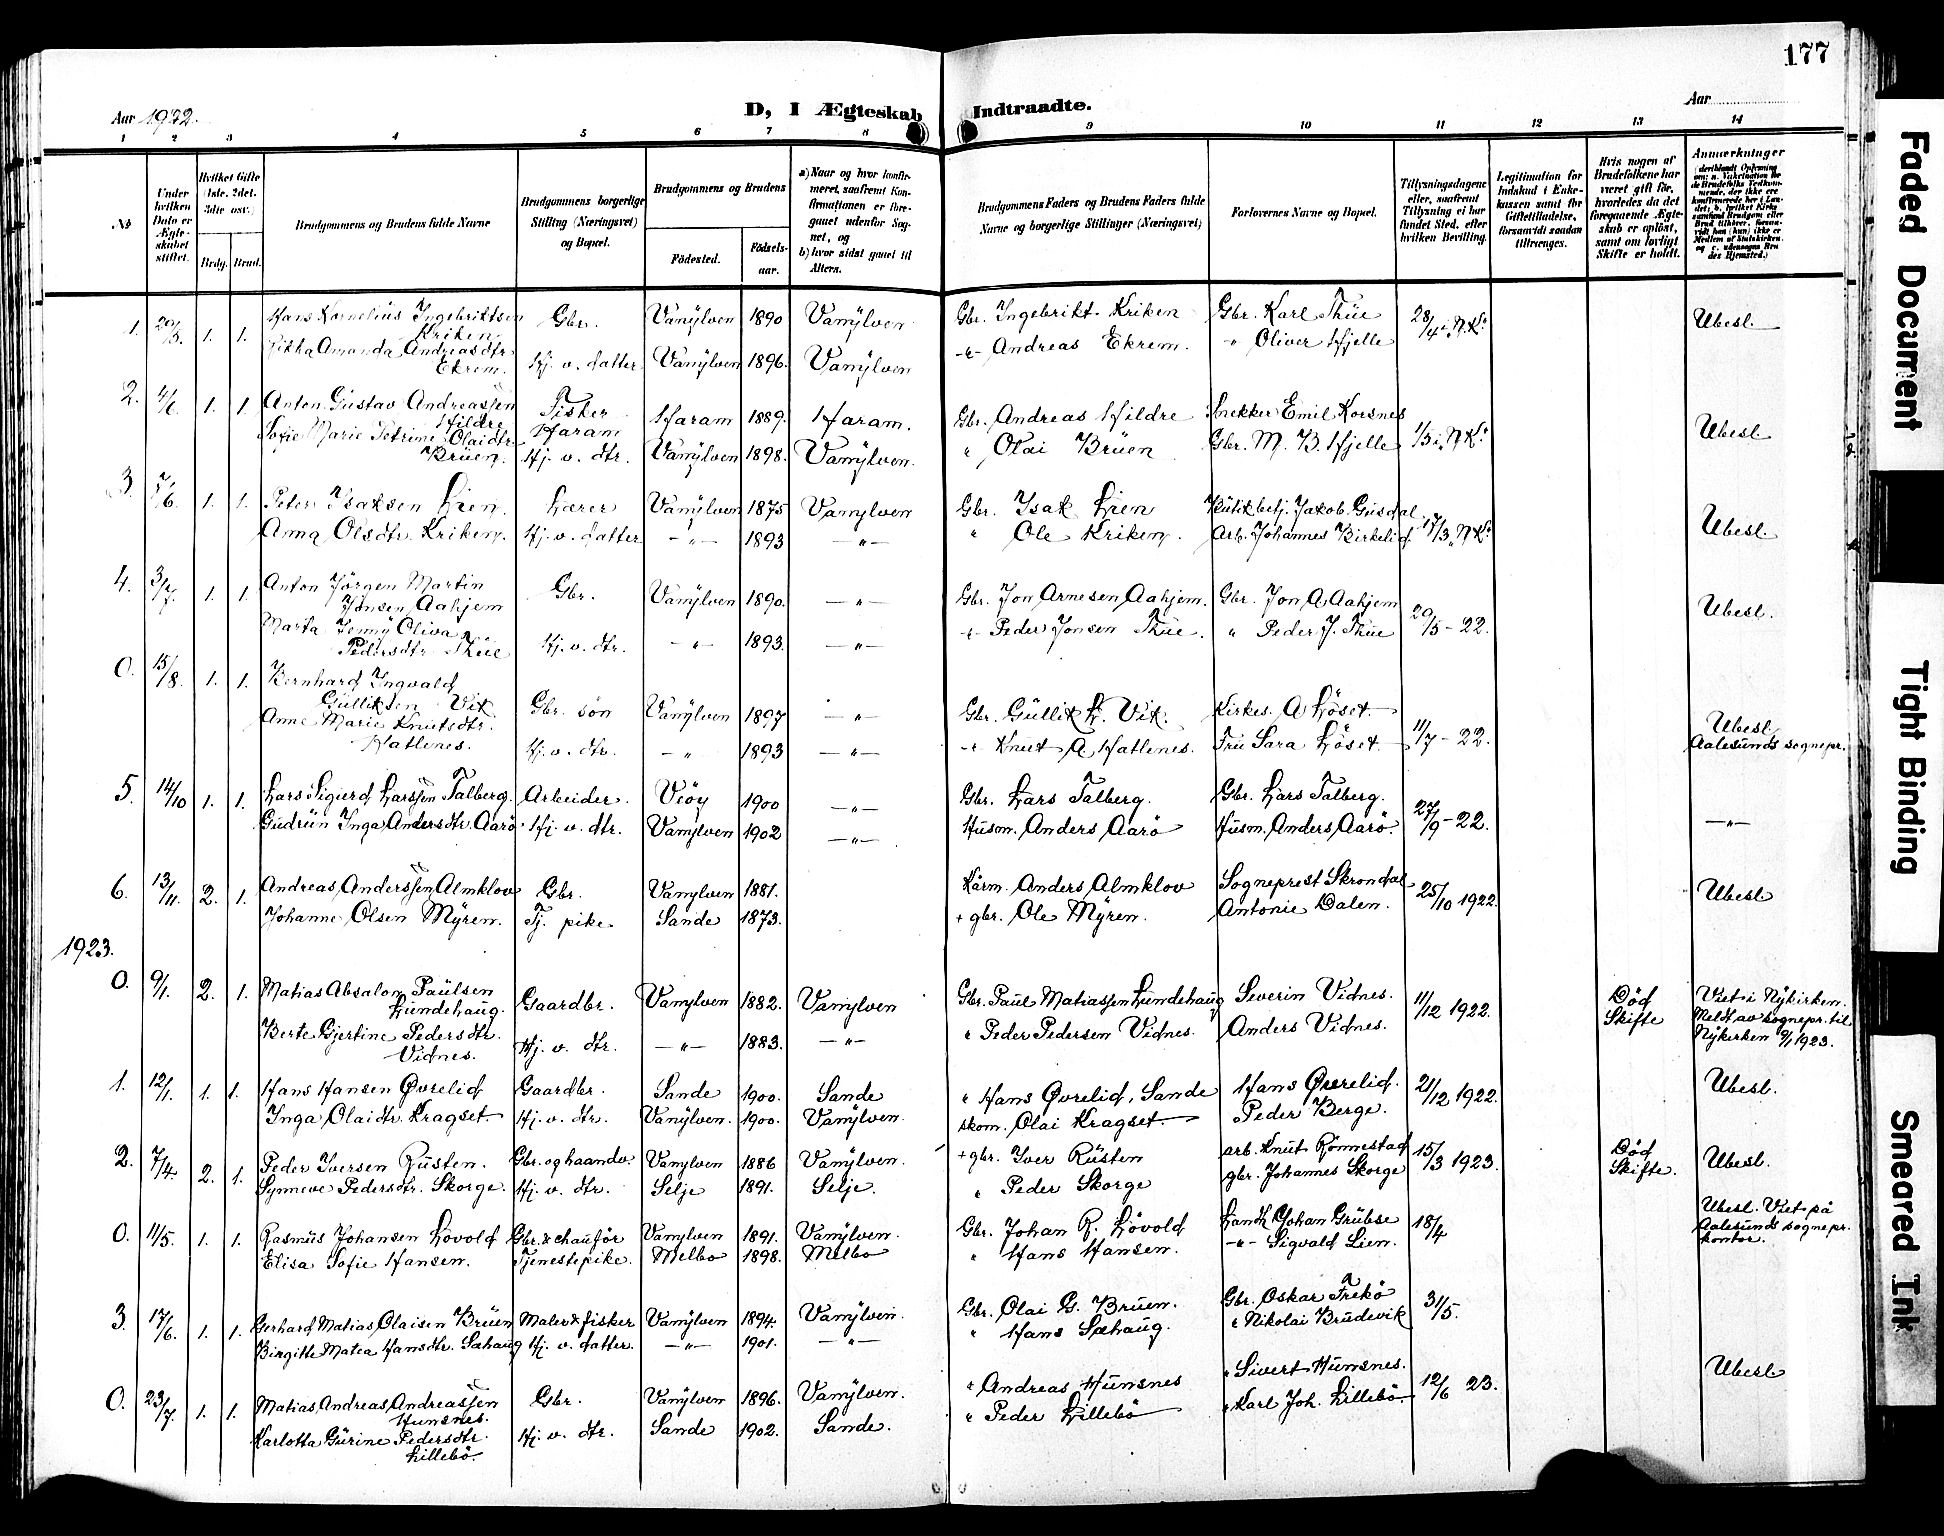 177
Aar 1922.
D, I Ægteskab Indtraadte.
Aar
1 2 3 4 5 6 7 8 9 10 11 12 13 14
No
Under hvilken Dato er Ægteskabet stiftet.
Hvilket Gifte (1ste, 2det, 3die osv.)
Brdg. Brud.
Brudgommens og Brudens fulde Navne
Brudgommens borgerlige Stilling (Næringsvei) og Bopæl.
Brudgommens og Brudens
Födested.
Födselsaar.
a) Naar og hvor konfirmeret, saafremt Konfirmationen er foregaaet udenfor Sognet, og
b) hvor sidst gaaet til Alters.
Brudgommens Faders og Brudens Faders fulde Navne og borgerlige Stillinger (Næringsvei)
Forlovernes Navne og Bopæl.
Tillysningsdagene eller, saafremt Tillysning ei har fundet Sted, efter hvilken Bevilling.
Legitimation for Indskud i Enkekassen samt for Giftetilladelse, forsaavidt saadan tiltrænges.
Hvis nogen af Brudefolkene har været gift för, hvorledes da det foregaaende Ægteskab er oplöst, samt om lovligt Skifte er holdt.
Anmærkninger
1. 20/5. 1. 1. Hans Kornelius Ingebriktsen Kriken. Gbr. Vanÿlven 1890 Vanÿlven Gbr. Ingebrikt Kriken Gbr. Karl Thue 28/4 i N.K. Ubesl.
Amanda Andreasdtr Ekrem. Hj. v. datter Vanÿlven 1896. Vanÿlven -"- Andreas Ekrem. " Oliver Hjelle
2. 4/6. 1. 1. Anton Gustav Andreassen Hildre Fisker Haram Haram 1889. Haram. Gbr. Andreas Hildre Snekker Emil Korsnes 1/5 i N.K. Ubesl.
Sofie Marie Petrine Olaidtr Brüen. Hj. v. dtr. Vanÿlven 1898. Vanÿlven. " Olai Brüen Gbr. M. B. Hjelle
3. 5/6 1. 1. Peter Isaksen Lien. Lærer Vanÿlven 1875 Vanylven Gbr. Isak Lien Butikbetj. Jakob Gusdal 17/3 N.K. Ubesl.
Anna Olsdtr. Kriken. Hj. v. datter -"- 1893 -"- " Ole Kriken. Arb. Johannes Birkelid
4. 3/7. 1. 1. Anton Jörgen Martin Jonsen Aahjem Gbr. Vanÿlven 1890. -"- Gbr. Jon Arnesen Aahjem. Gbr. Jon A Aahjem 20/5 - 22. Ubesl.
Marta Jenny Oliva Pedersdtr Thüe Hj. v. dtr. -"- 1893. -"- -"- Peder Jonsen Thüe. " Peder J. Thüe
0. 15/8. 1. 1. Bernhard Ingvald Gülliksen Vik Gbr. sön Vanÿlven 1897 -"- Gbr. Güllik L. Vik. Kirkes. A Löset 11/7 - 22. Ubesl Aalesunds sognepr.
Anne Marie Knutsdtr. Hatlenes. Hj. v. dtr. -"- 1893 -"- -"- Knut A Hatlenes. Fru Sara Löset
5. 14/10 1. 1. Lars Sigurd Larssen Talberg. Arbeider. Veöy 1900 -"- Gbr. Lars Talberg. Gbr. Lars Talberg. 27/9 - 22. -"-
Gudrün Inga Andersdtr. Aarö. Hj. v. dtr. Vanylven 1902 -"- Husm. Anders Aarö Husm. Anders Aarö.
6. 13/11. 2. 1. Andreas Anderssen Almklov Gbr. Vanylven 1881. Kårm. Anders Almklov Sogneprest Skrondal 25/10 1922. Ubesl
Johanne Olsen Mÿren. Tj. pike. Sande 1873. + gbr. Ole Mÿren. Antonie Dalen.
1923.
0. 9/1. 2. 1. Matias Absalon Paülsen Lundehaug. Gaardbr. Vanylven 1882. Vanylven Gbr. Paul Matiassen Lundehaüg Severin Vidnes. 11/12 1922. Död Skifte Viet i Nÿkirken. Meldt av sognepr. til Nÿkirken 9/1 1923.
Berte Gjertine Pedersdtr. Vidnes. Hj. v. dtr. -"- 1883. -"- " Peder Pedersen Vidnes. Anders Vidnes.
1. 12/1. 1. 1. Hans Hansen Øvrelid Gaardbr. Sande 1900. Sande " Hans Øvrelid, Sande Hans Øvrelid. 21/12 1922. Ubesl.
Inga Olaidtr. Kragset. Hj. v. dtr. Vanÿlven. 1900. Vanÿlven. skom. Olai Kragset. Peder Berge.
2. 7/4. 2. 1. Peder Iversen Rüsten. Gbr. og haandv. Vanylven 1886 Vanÿlven. + gbr. Iver Rüsten arb. Knut Rönnestad 15/3 1923. Död Skifte. Ubesl.
Synneve Pedersdtr. Skorge. Hj. v. dtr. Selje 1891. Selje. " Peder Skorge gbr. Johannes Skorge
0. 11/5. 1. 1. Rasmüs Johansen Lövold Gbr. & chauför Vanylven 1891. Vanÿlven. Gbr. Johan R. Lövold Landh. Johan Grübse 18/4 Ubesl. Viet på Aalesunds sognepr. kontor.
Elisa Sofie Hansen. Tjenestepike. Melbo 1898. Melbo " Hans Hansen. -"- Sigvald Lien.
3. 17/6. 1. 1. Gerhard Matias Olaisen Brüen Maler & fisker Vanÿlven 1894. Vanÿlven. Gbr. Olai G. Bruen. Gbr. Oskar Frekö 31/5.
Birgitte Matea Hansdtr. Sæhaug Hj. v. datter. -"- 1901. -"- " Hans Sæhaug. " Nikolai Brudevik
0. 23/7. 1. 1. Matias Andreas Andreassen Hunsnes. Gbr. Vanÿlven 1896. Vanÿlven. " Andreas Hunsnes " Sivert Hunsnes. 12/6 23. Ubesl
Karlotta Gürine Pedersdtr. Lillebö. Hj. v. dtr. Sande 1902. Sande. " Peder Lillebö " Karl Joh. Lillebö.
Faded Document
Tight Binding
Smeared Ink